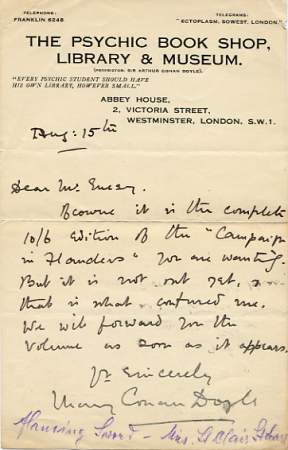 TELEPHONE:
FRANKLIN 6248
TELEGRAMS:
"ECTOPLASM, SOWEST, LONDON."
THE PSYCHIC BOOK SHOP,
LIBRARY & MUSEUM.
(PROPRIETOR: SIR ARTHUR CONAN DOYLE).
"EVERY PSYCHIC STUDENT SHOULD HAVE
HIS OWN LIBRARY, HOWEVER SMALL."
ABBEY HOUSE,
2, VICTORIA STREET,
WESTMINSTER, LONDON, S.W.1.
Aug: 15th
Dear Mr
it is the complete
10/6 edition of the "Campaign
in Flanders" you are wanting.
But it is not out yet, &
that is what confused me.
We will forward you the
volume as soon as it appears.
Yrs Sincerely
Mary Conan Doyle
Sword - Mrs. St Clair